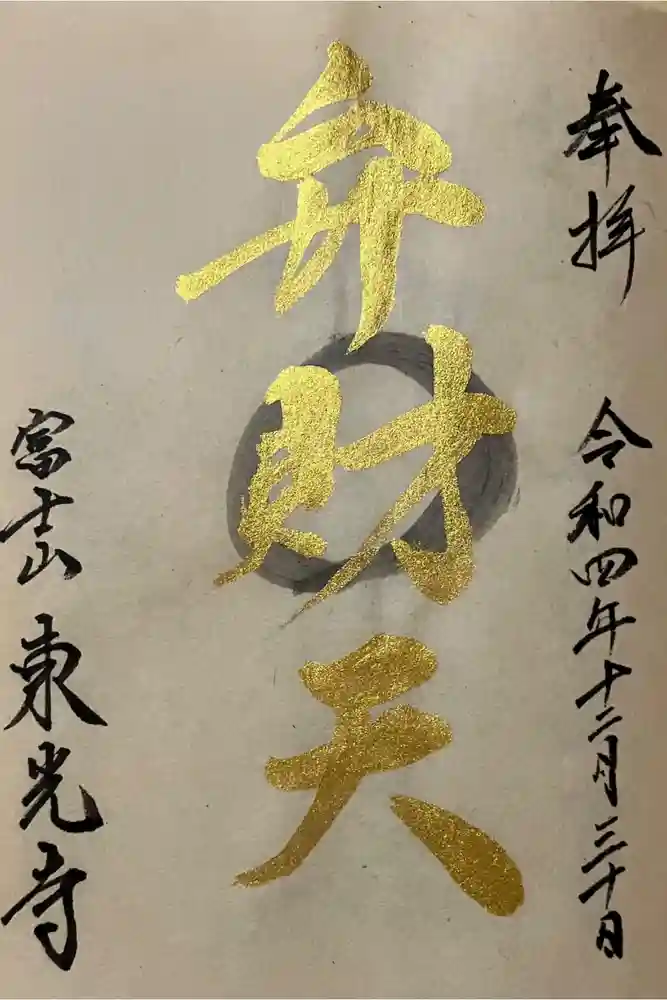 奉拝
令和四年十二月三十日
弁財天
富士山
東光寺